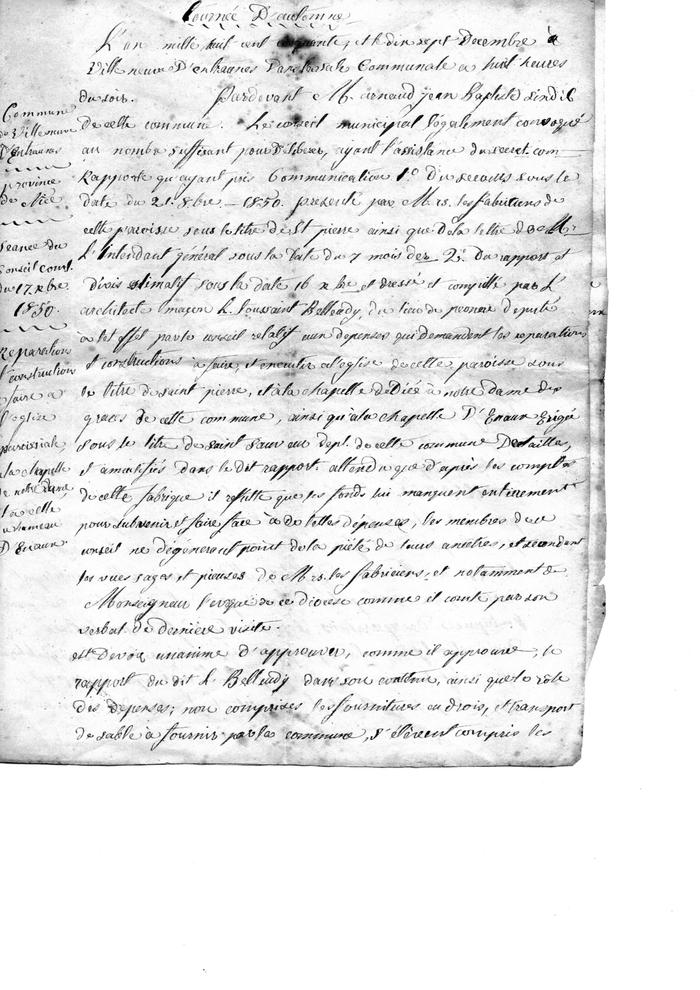 Tournée D'automne
L'an mille huit cent cinquante, et le dix sept Decembre à
Ville neuve D'entraunes Dans la sale Communale a huit heures
du soir. Pardevant Mr. arnaud jean Baptiste sindic
De cette commune. Le conseil municipal légalement convoqué
au nombre suffisant pour Deliberer, ayant l'assistance du secret. com
Rapporte qu'ayant pris Communication 1.o Du recours sous le
Date du 21. 8bre - 1850. presenté par Mrs. les fabriciens de
cette paroisse sous le titre de St pierre ainsi que de la lettre de Mr
L'Intendant général sous la Date du 7 mois der. 2.o Du rapport et
Divis estimatif sous la date 16 xbre et dressé et compillé par L'
architecte maçon h. toussaint Belleudy, du lieu de peonne deputé
à tel effet par le conseil relatif aux depenses qui demandent les reparations
et constructions à faire, et executer à l'eglise de cette paroisse sous
le titre de saint pierre, et à la chapelle dediée à notre dame des
graces de cette commune, ainsi qu'à la chapelle D'Enaux Erigée
sous le titre de saint sauveur dept. de cette commune Detaillés,
et
 dans le dit rapport. attendu que d'après les comptes
de cette fabrique il resulte que les fonds lui manquent entierement
pour subvenir et faire face à de telles depenses, les membres de ce
conseil ne dégénerent point de la piété de leurs ancetres, et secondant
les vues sages et pieuses de Mrs. les fabriciens, et notamment de
Monseigneur l'evêque de ce diocese comme il conste par son
verbal de derniere visite.
est Devenu unanime d'approuver, comme il approuve, le
rapport du dit h. Belleudy dans son contenu, ainsi que le role
des depenses; non comprises les fournitures en bois, et transport
de sable à fournir par la commune, s'élevent compris les
Commune
de Villeneuve
D'Entraunes
province
de Nice
seance du
Conseil Coml.
du 17. xbre
1850.
Reparation
et construction
à faire à
l'eglise
paroissiale,
à la chapelle
de notre dame,
et à celle
du hameau
D'Enaux.